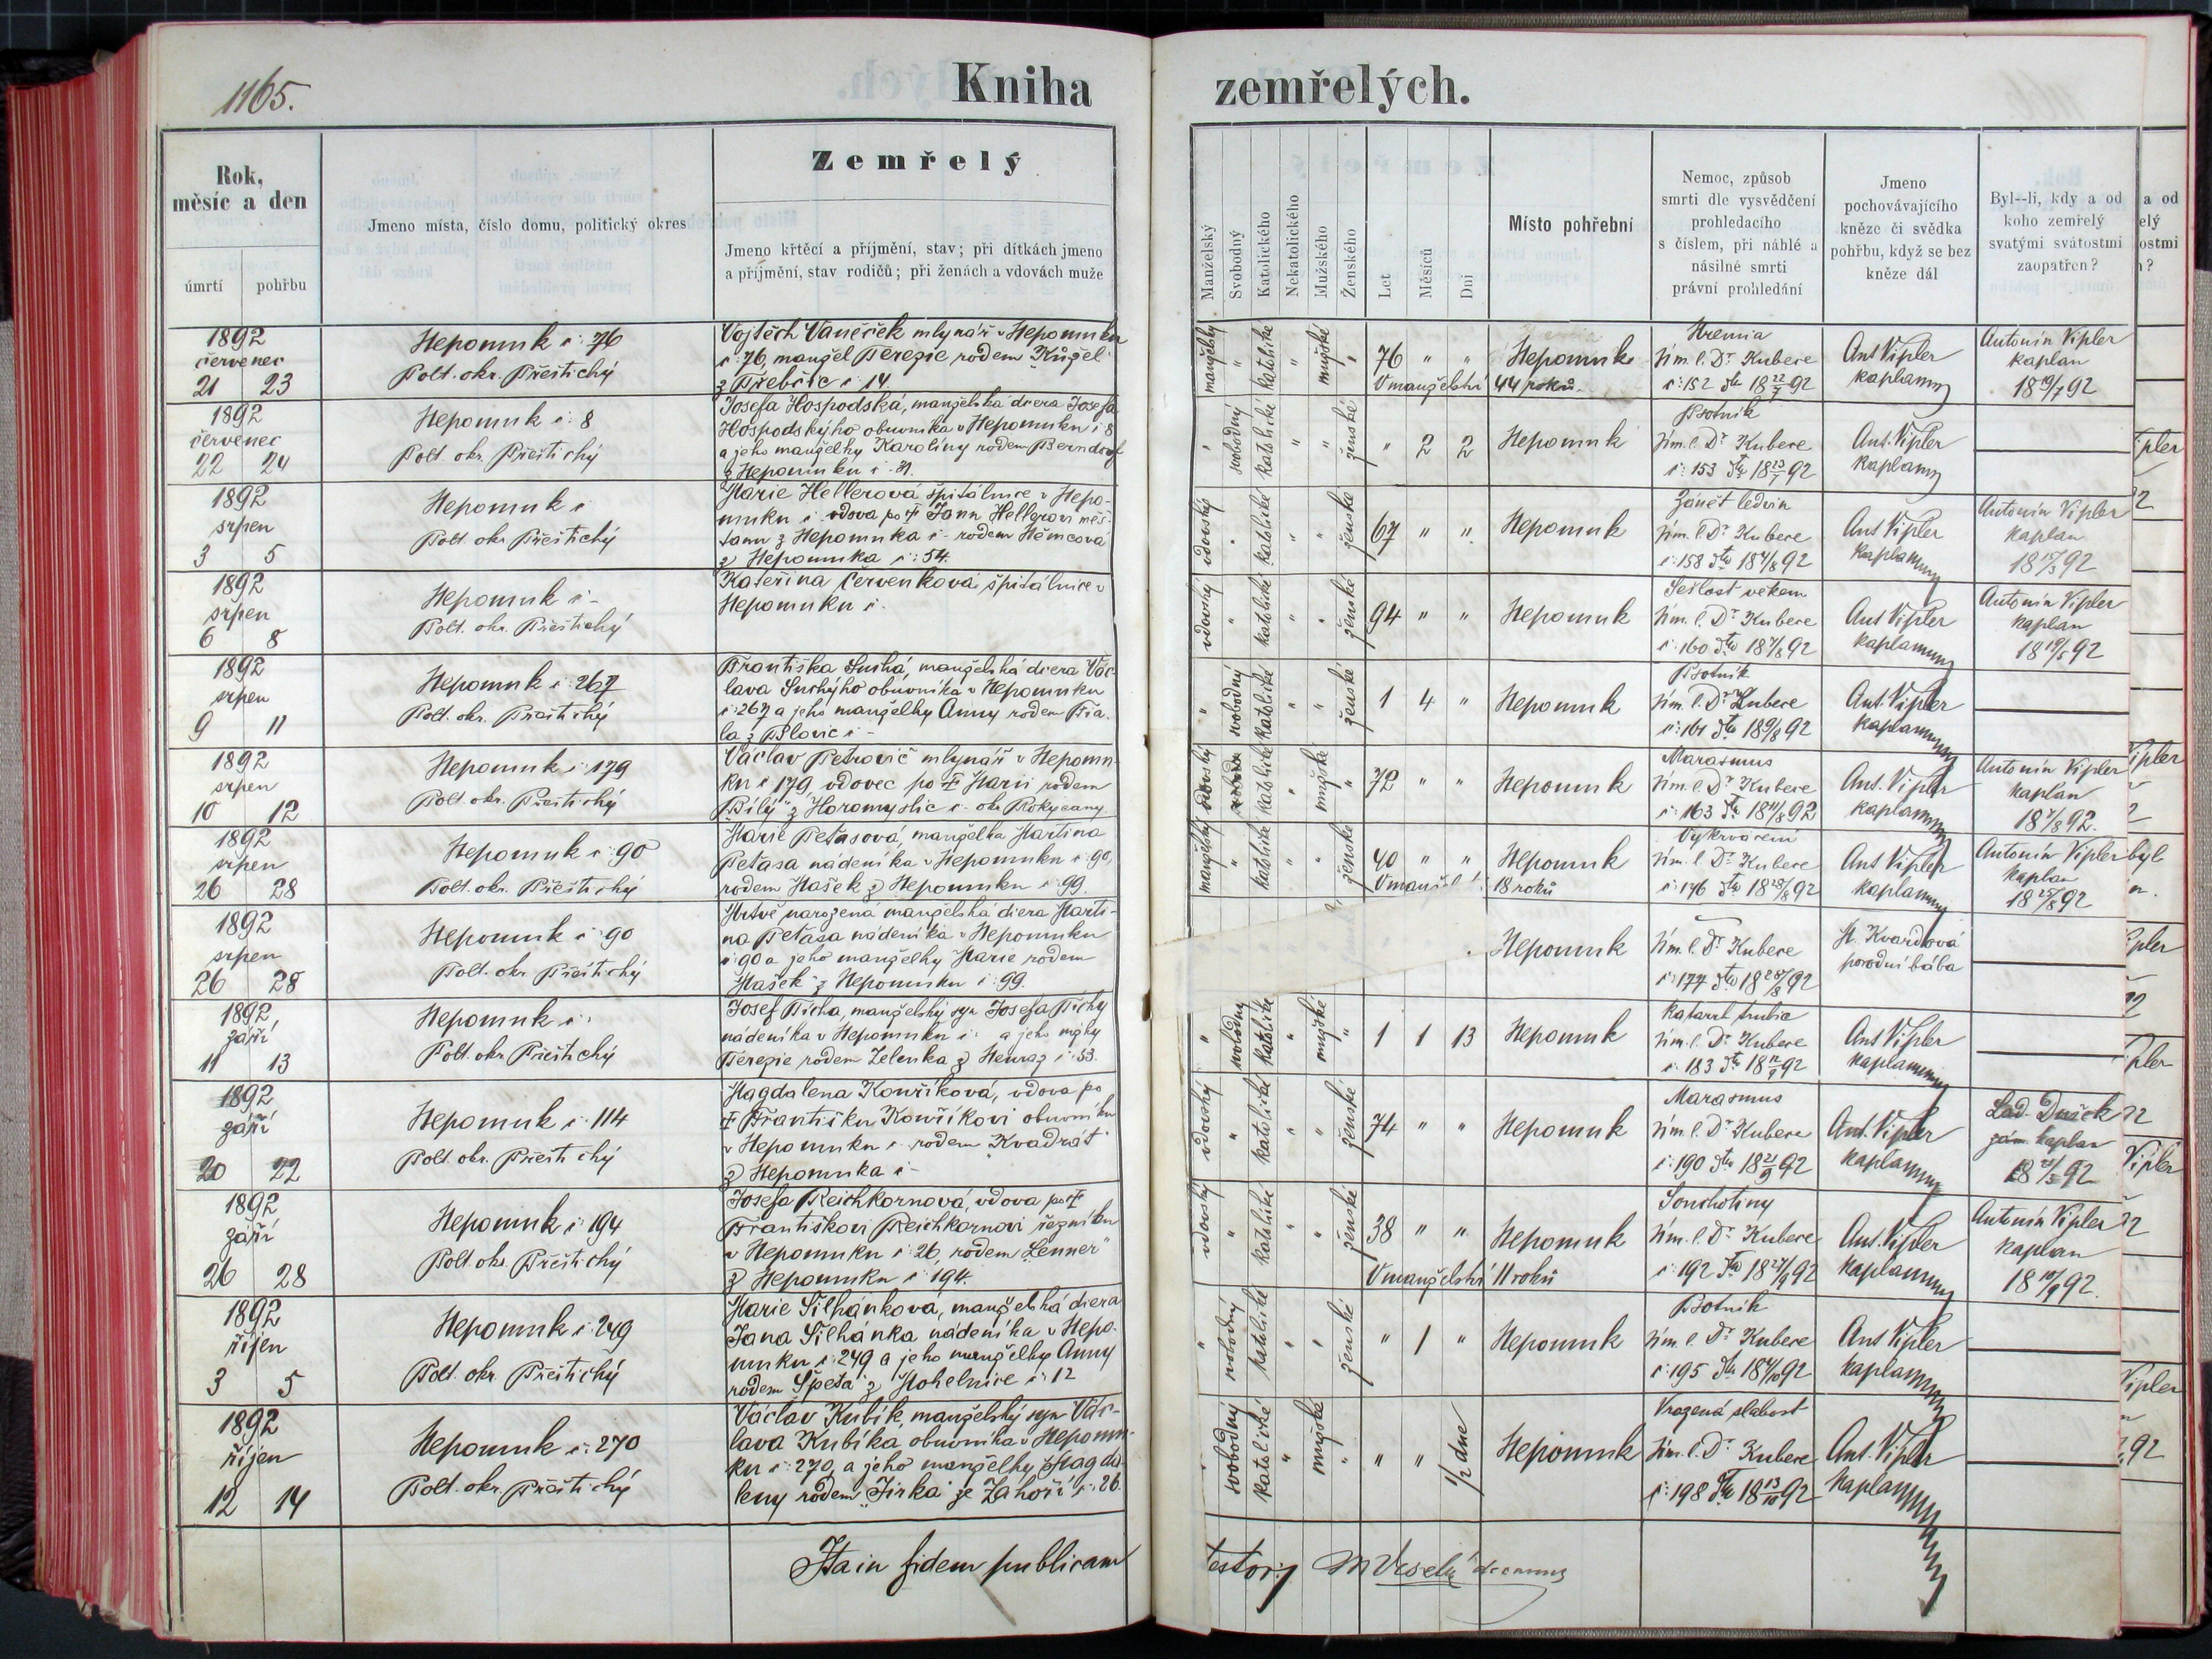 1165.
Kniha zemřelých.
Rok, měsíc a den
úmrtí pohřbu
Jmeno místa, číslo domu, politický okres
Zemřelý
Jmeno křtěcí a příjmění, stav; při dítkách jmeno
a příjmění, stav rodičů; při ženách a vdovách muže
Manželský
Svobodný
Katolického
Nekatolického
Mužského
Ženského
Let
Měsíců
Dní
Místo pohřební
Nemoc, způsob
smrti dle vysvědčení
prohledacího
s číslem, při náhlé a
násilné smrti
právní prohledání
Jmeno
pochovávajícího
kněze či svědka
pohřbu, když se bez
kněze dál
Byl--li, kdy a od
koho zemřelý
svatými svátostmi
zaopatřen?
1892
červenec
21 23
Nepomuk č: 76
Polt. okr. Přeštický
Vojtěch Vaněček mlynář v Nepomuku
č: 76, manžel Terezie rodem "Kůžel"
z Třebčic č: 14.
manželský " katolické " mužské "
76 " "
V manželství 44 roků.
Nepomuk
Uremia
Zim. l. Dr Kubece
č: 152 dto 18 22/7 92
Ant Vipler
kaplan
Antonín Vipler
kaplan
18 19/7 92
1892
červenec
22 24
Nepomuk č: 8
Polt. okr. Přeštický
Josefa Hospodská, manželská dcera Josefa
Hospodskýho obuvníka v Nepomuku č: 8
a jeho manželky Karolíny rodem Berndorf
z Nepomuku č: 31.
" svobodný katolické " " ženské
" 2 2
Nepomuk
Psotník
Zim. l. Dr Kubece
č: 153 dto 18 23/7 92
Ant. Vipler
kaplan
1892
srpen
3 5
Nepomuk č
Polt. okr. Přeštický
Marie Hellerová špitálnice v Nepo-
muku č vdova po † Janu Hellerovi měš-
tanu z Nepomuka č - rodem Němcová
z Nepomuka č: 54.
vdovský " katolické " " ženské
67 " "
Nepomuk
Zánět ledvin
Zim. l. Dr Kubece
č: 158 dto 18 4/8 92
Ant Vipler
kaplan
Antonín Vipler
kaplan
1892
srpen
6 8
Nepomuk č -
Polt. okr. Přeštický
Kateřina Červenková špitálnice v
Nepomuku č.
vdovský " katolické " " ženské
94 " "
Nepomuk
Sešlost věkem
Zim. l. Dr Kubece
č: 160 dto 18 7/8 92
Ant Vipler
kaplan
Antonín Vipler
kaplan
1892
srpen
9 11
Nepomuk č: 267
Polt. okr. Přeštický
Františka Suchá, manželská dcera Vác-
lava Suchýho obuvníka v Nepomuku
č: 267 a jeho manželky Anny rodem Fia-
la z Pšovic č -
" svobodný katolické " " ženské
1 4 "
Nepomuk
Psotník
Zim. l. Dr Kubece
č: 161 dto 18 9/8 92
Ant. Vipler
kaplan
1892
srpen
10 12
Nepomuk č: 179
Polt. okr. Přeštický
Václav Petrovič mlynář v Nepomu-
ku č 179, vdovec po † Marii rodem
"Bílý" z Horomyslic č - okr. Rokycany
vdovský katolické " mužské "
72 " "
Nepomuk
Marasmus
Zim. l. Dr Kubece
č: 163 dto 18 11/8 92
Ant. Vipler
kaplan
Antonín Vipler
kaplan
18 7/8 92.
1892
srpen
26 28
Nepomuk č: 90
Polt. okr. Přeštický
Marie Peťasová, manželka Martina
Peťasa nádeníka v Nepomuku č: 90,
rodem Hašek z Nepomuku č: 99.
manželský " katolické " " ženské
40 " "
V manžel 18 roků
Nepomuk
Vykrvácení
Zim. l. Dr Kubece
č: 176 dto 18 28/8 92
Ant Vipler
kaplan
Antonín Vipler
kaplan
18 25/8 92
1892
srpen
26 28
Nepomuk č 90
Polt. okr. Přeštický
Mrtvě narozená manželská dcera Marti-
na Peťasa nádeníka v Nepomuku
č: 90 a jeho manželky Marie rodem
Hašek z Nepomuku č: 99.
Nepomuk
Zim. l. Dr Kubece
č: 177 dto 18 28/8 92
M. Kvardová
porodní bába
1892
září
11 13
Nepomuk č:
Polt. okr. Přeštický
Josef Tícha, manželský syn Josefa Tíchy
nádeníka v Nepomuku č: a jeho mžky
Terezie rodem Zelenka z Neuraz č: 53.
" svobodný katolické " mužské "
1 1 13
Nepomuk
Katarrh
Zim. l. Dr Kubece
č: 183 dto 18 12/9 92
Ant Vipler
kaplan
1892
září
20 22
Nepomuk č: 114
Polt. okr. Přeštický
Magdalena Kovříková, vdova po
† Františku Kovříkovi obuvníku
v Nepomuku č - rodem "Kvadrát"
z Nepomuka č -
vdovský " katolické " " ženské
74 " "
Nepomuk
Marasmus
Zim. l. Dr Kubece
č: 190 dto 18 21/9 92
Ant. Vipler
kaplan
Lad. Dušek
zám. kaplan
1892
září
26 28
Nepomuk č: 194
Polt. okr. Přeštický
Josefa Reichkornová, vdova po †
Františkovi Reichkornovi řezníku
v Nepomuku č: 26, rodem "Lenner"
z Nepomuku č: 194.
vdovský " katolické " " ženské
38 " "
V manželství 11 roků
Nepomuk
Souchotiny
Zim. l. Dr Kubece
č: 192 dto 18 27/9 92
Ant. Vipler
kaplan
Antonín Vipler
kaplan
18 10/9 92.
1892
říjen
3 5
Nepomuk č: 249
Polt. okr. Přeštický
Marie Šilhánková, manželská dcera
Jana Šilhánka nádeníka v Nepo-
muku č: 249 a jeho manželky Anny
rodem Špeta z Mohelnice č: 12
" svobodný katolické " " ženské
" 1 "
Nepomuk
Psotník
Zim. l. Dr Kubece
č: 195 dto 18 4/10 92
Ant Vipler
kaplan
1892
říjen
12 14
Nepomuk č: 270
Polt. okr. Přeštický
Václav Kubík, manželský syn Vác-
lava Kubíka, obuvníka v Nepomu-
ku č: 270, a jeho manželky Magda-
leny rodem "Jirka" ze Zahoří č: 26.
svobodný katolické " mužské "
" " 1/2 dne
Nepomuk
Vrozená slabost
Zim. l. Dr Kubece
č: 198 dto 18 13/10 92
Ant. Vipler
kaplan
Ita in fidem publicam testor:
M Veselý decanus